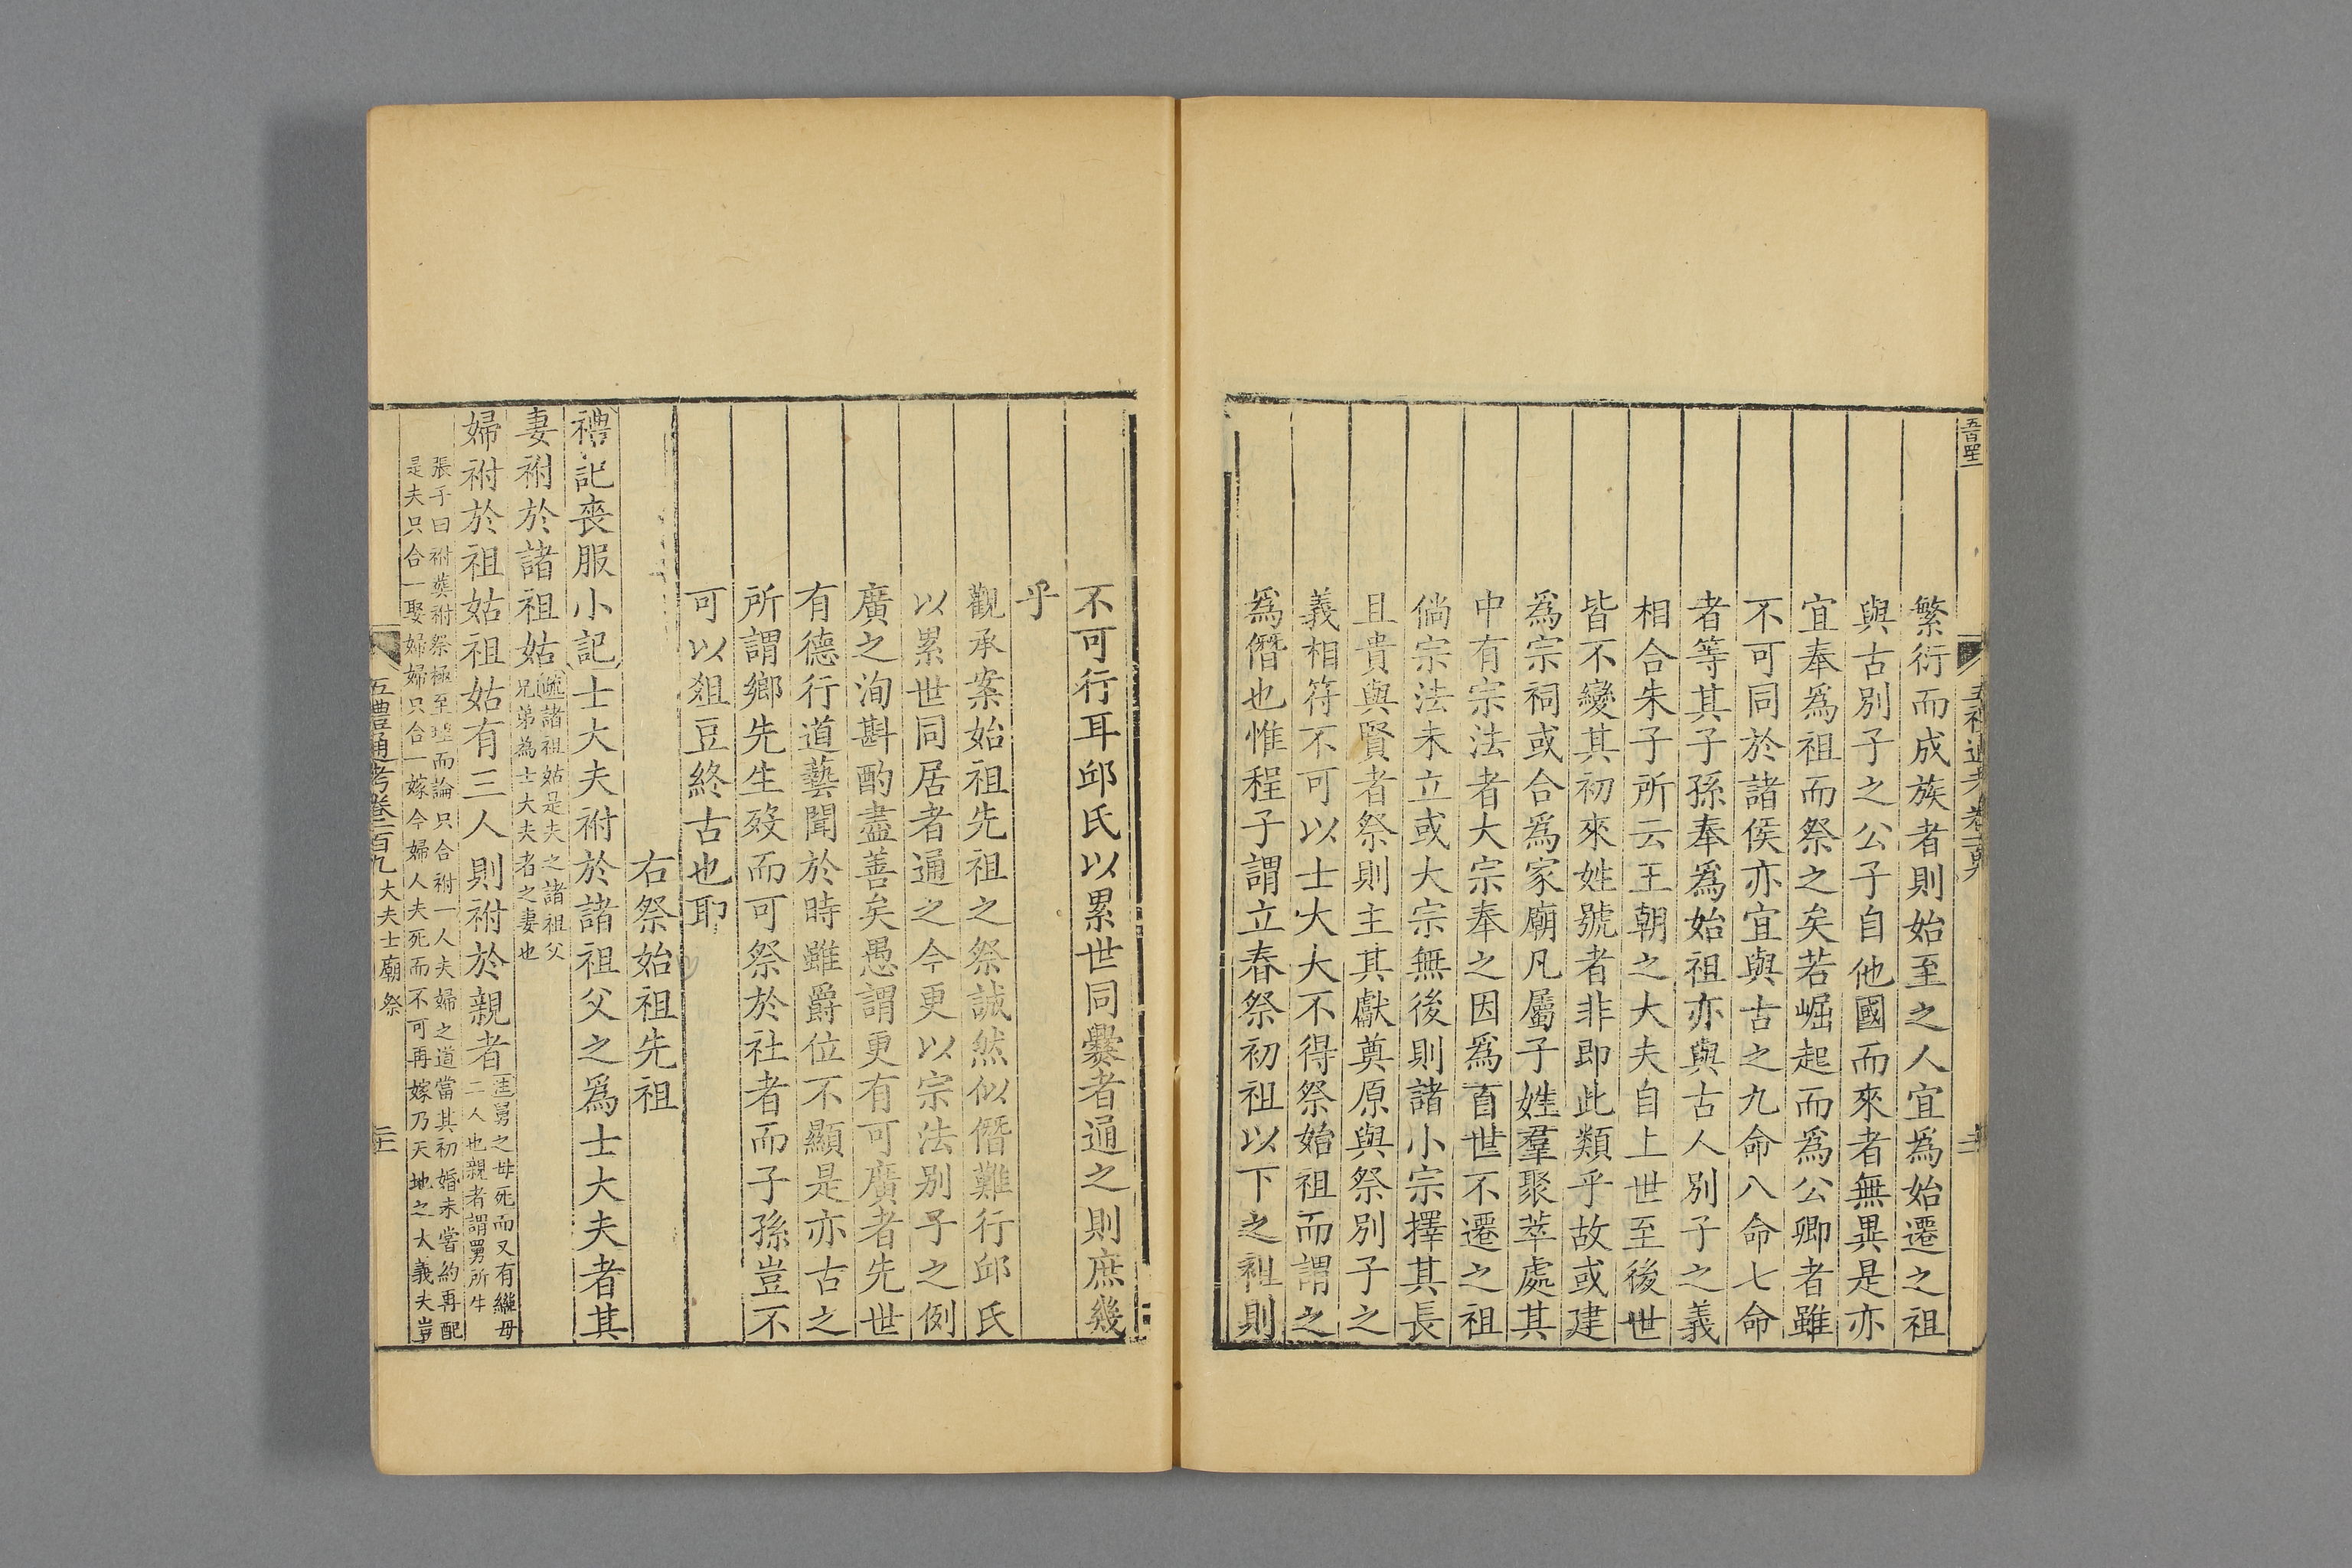 五百四十一
五禮通考卷一百九
繁衍而成族者則始至之人宜爲始遷之祖
與古別子之公子自他國而來者無異是亦
宜奉爲祖而祭之矣若崛起而爲公卿者雖
不可同於諸侯亦宜與古之九命八命七命
者等其子孫奉爲始祖亦與古人別子之義
相合朱子所云王朝之大夫自上世至後世
皆不變其初來姓號者非即此類乎故或建
爲宗祠或合爲家廟凡屬子姓羣聚萃處其
中有宗法者大宗奉之因爲百世不遷之祖
倘宗法未立或大宗無後則諸小宗擇其長
且貴與賢者祭則主其獻奠原與祭別子之
義相符不可以士大夫不得祭始祖而謂之
爲僭也惟程子謂立春祭初祖以下之祖則
不可行耳邱氏以累世同爨者通之則庶幾
乎
觀承案始祖先祖之祭誠然似僭難行邱氏
以累世同居者通之今更以宗法別子之例
廣之洵斟酌盡善矣愚謂更有可廣者先世
有德行道藝聞於時雖爵位不顯是亦古之
所謂鄉先生歿而可祭於社者而子孫豈不
可以俎豆終古也耶
右祭始祖先祖
禮記喪服小記士大夫祔於諸祖父之爲士大夫者其
妻祔於諸祖姑疏諸祖姑是夫之諸祖父
兄弟爲士大夫者之妻也
婦祔於祖姑祖姑有三人則祔於親者注舅之母死而又有繼母
二人也親者謂舅所生
張子曰祔葬祔祭極至理而論只合祔一人夫婦之道當其初婚未嘗約再配
是夫只合一娶婦婦只合一嫁今婦人夫死而不可再嫁乃天地之大義夫豈
五禮通考卷一百九 大夫士廟祭